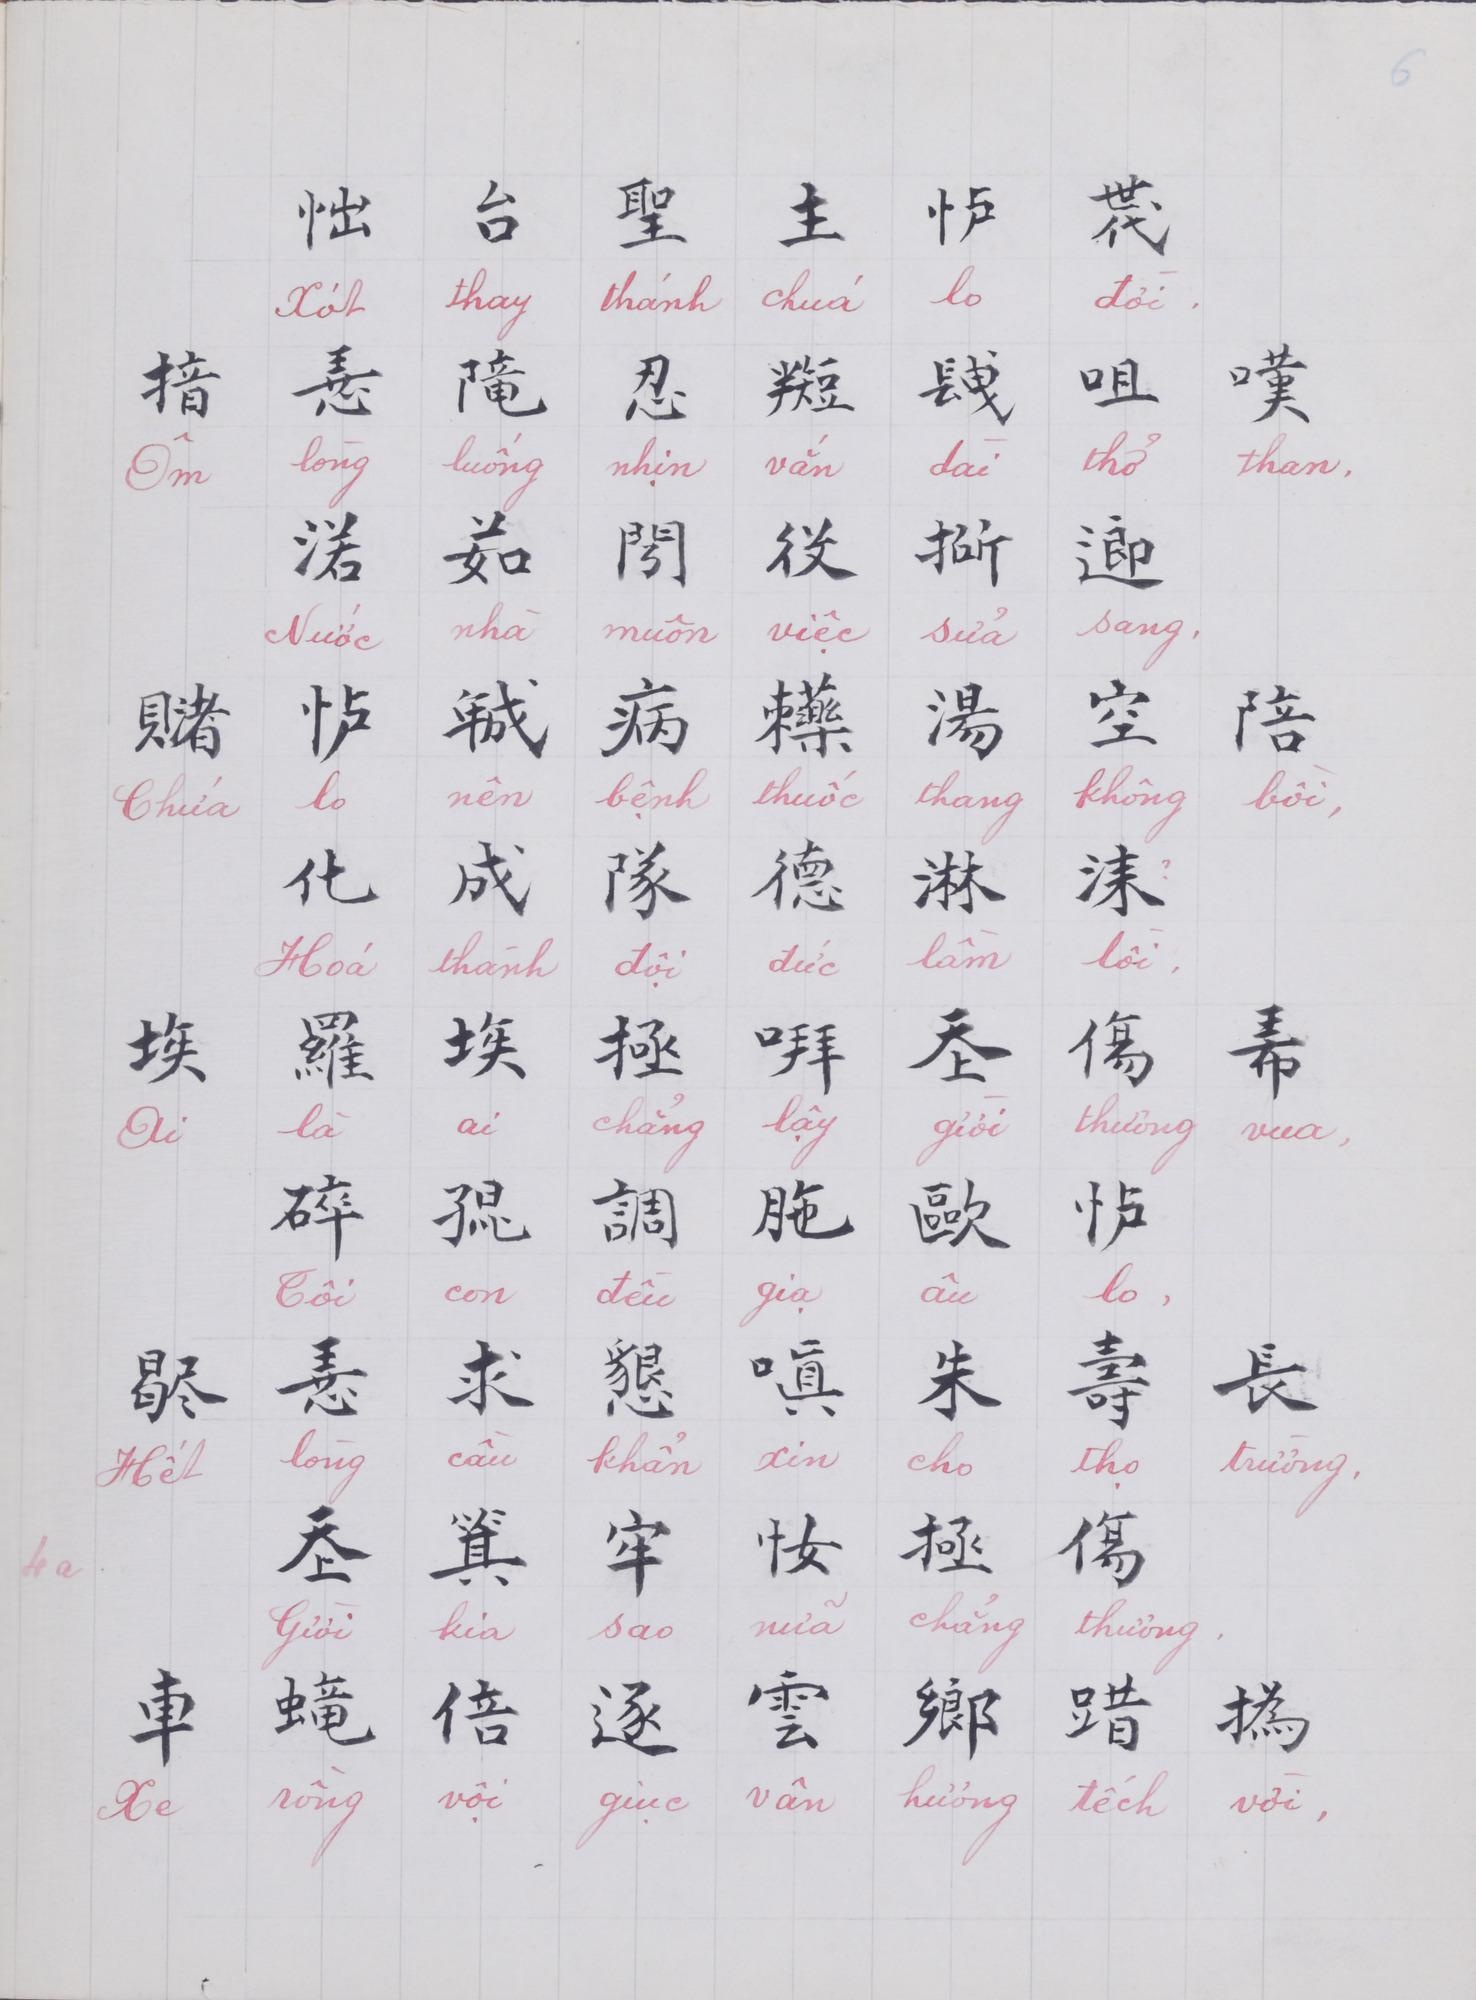 6
怞台聖主怍𠁀
Xót thay thánh chuá lo đời.
揞𢚸隴忍𥐆𨱽咀嘆
Ôm lòng luống nhịn vắn dài thở than,
渃茹閍役𢯢𨖅
Nước nhà muôn việc sửa sang,
賭怍𢧚病𧆄湯空陪
Chứa lo nên bệnh thuốc thang không bồi,
化成隊德淋洡?
Hoá thành đội đức lầm lồi,
埃羅埃極𢱎𡗶傷𢂜
Ai là ai chẳng lậy giời thương vua,
碎𡥵調𦙏歐怍
Tôi con đều giạ âu lo,
歇𢚸求懇嗔朱壽長
Hết lòng cầu khẩn xin cho thọ trường,
4a
𡗶箕牢𢘝極傷
Giời kia sao nưã chẳng thương.
車蠬倍逐雲鄉踖撝
Xe rồng vội giục vân hương tếch vời,